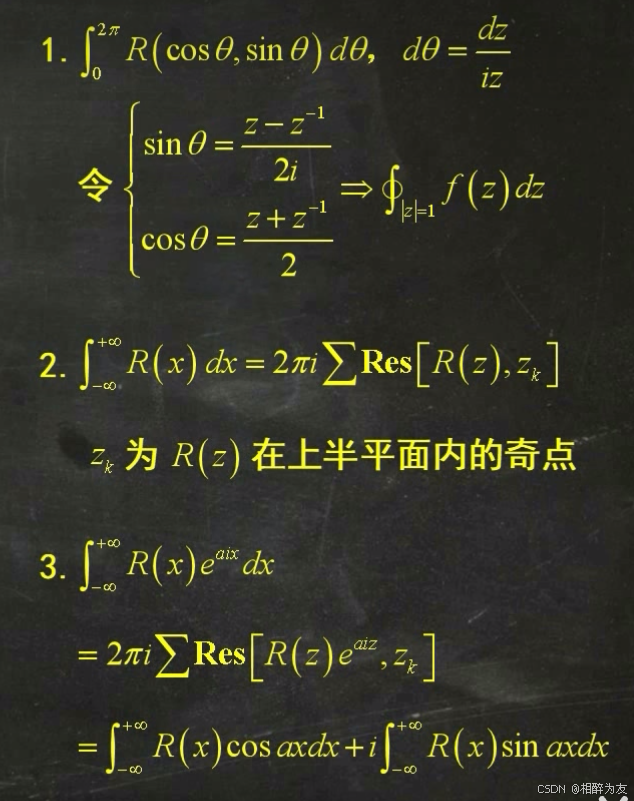 1. ∫₀^{2π} R(cos θ, sin θ) dθ, dθ = dz/iz
令 { sin θ = (z − z⁻¹)/2i
cos θ = (z + z⁻¹)/2 ⇒ ∮_{|z|=1} f(z) dz
2. ∫_{−∞}^{+∞} R(x) dx = 2πi ∑ Res[R(z), z_k]
z_k 为 R(z) 在上半平面内的奇点
3. ∫_{−∞}^{+∞} R(x) e^{aix} dx
= 2πi ∑ Res[R(z) e^{aiz}, z_k]
= ∫_{−∞}^{+∞} R(x) cos axdx + i ∫_{−∞}^{+∞} R(x) sin axdx
CSDN @相醉为友